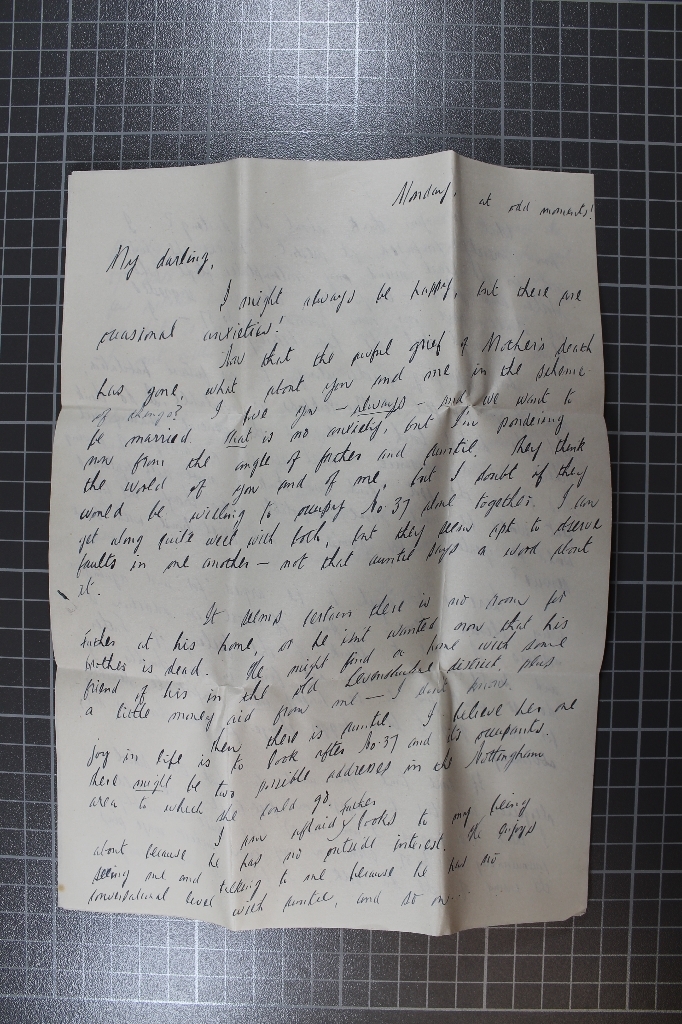 Monday, at odd moments!
My darling,
I might always be happy, but there are
occasional anxieties!
Now that the awful grief of Mother's death
has gone, what about you and me in the scheme
of things? I love you – always – and we want to
be married. That is no anxiety, but I'm pondering
now from the angle of father and auntie. They think
the world of you and of me, but I doubt if they
would be willing to occupy No. 37 alone together. I can
get along quite well with both, but they seem apt to observe
faults in one another – not that auntie says a word about
it.
It seems certain there is no room for
Father at his home, or he isn't wanted now that his
brother is dead. He might find a home with some
friend of his in the old Levenshulme district, plus
a little money aid from me – I don't know.
Then there is auntie. I believe her one
joy in life is to look after No. 37 and its occupants.
There might be two possible addresses in the Nottingham
area to which she could go.
I am afraid Father looks to my being
about because he has no outside interest. He enjoys
seeing me and talking to me because he has no
conversational level with auntie, and so on...